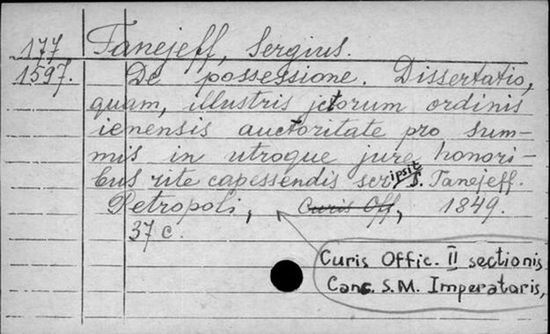 177
1597.
Tanejeff, Sergius.
De possessione. Dissertatio,
quam, illustris jctorum ordinis
ienensis auctoritate pro sum-
mis in utroque jure honori-
bus rite capessendis scripsit S. Tanejeff.
Petropoli, Curis Off, 1849.
37 c.
Curis Offic. II sectionis
Canc. S.M. Imperatoris,